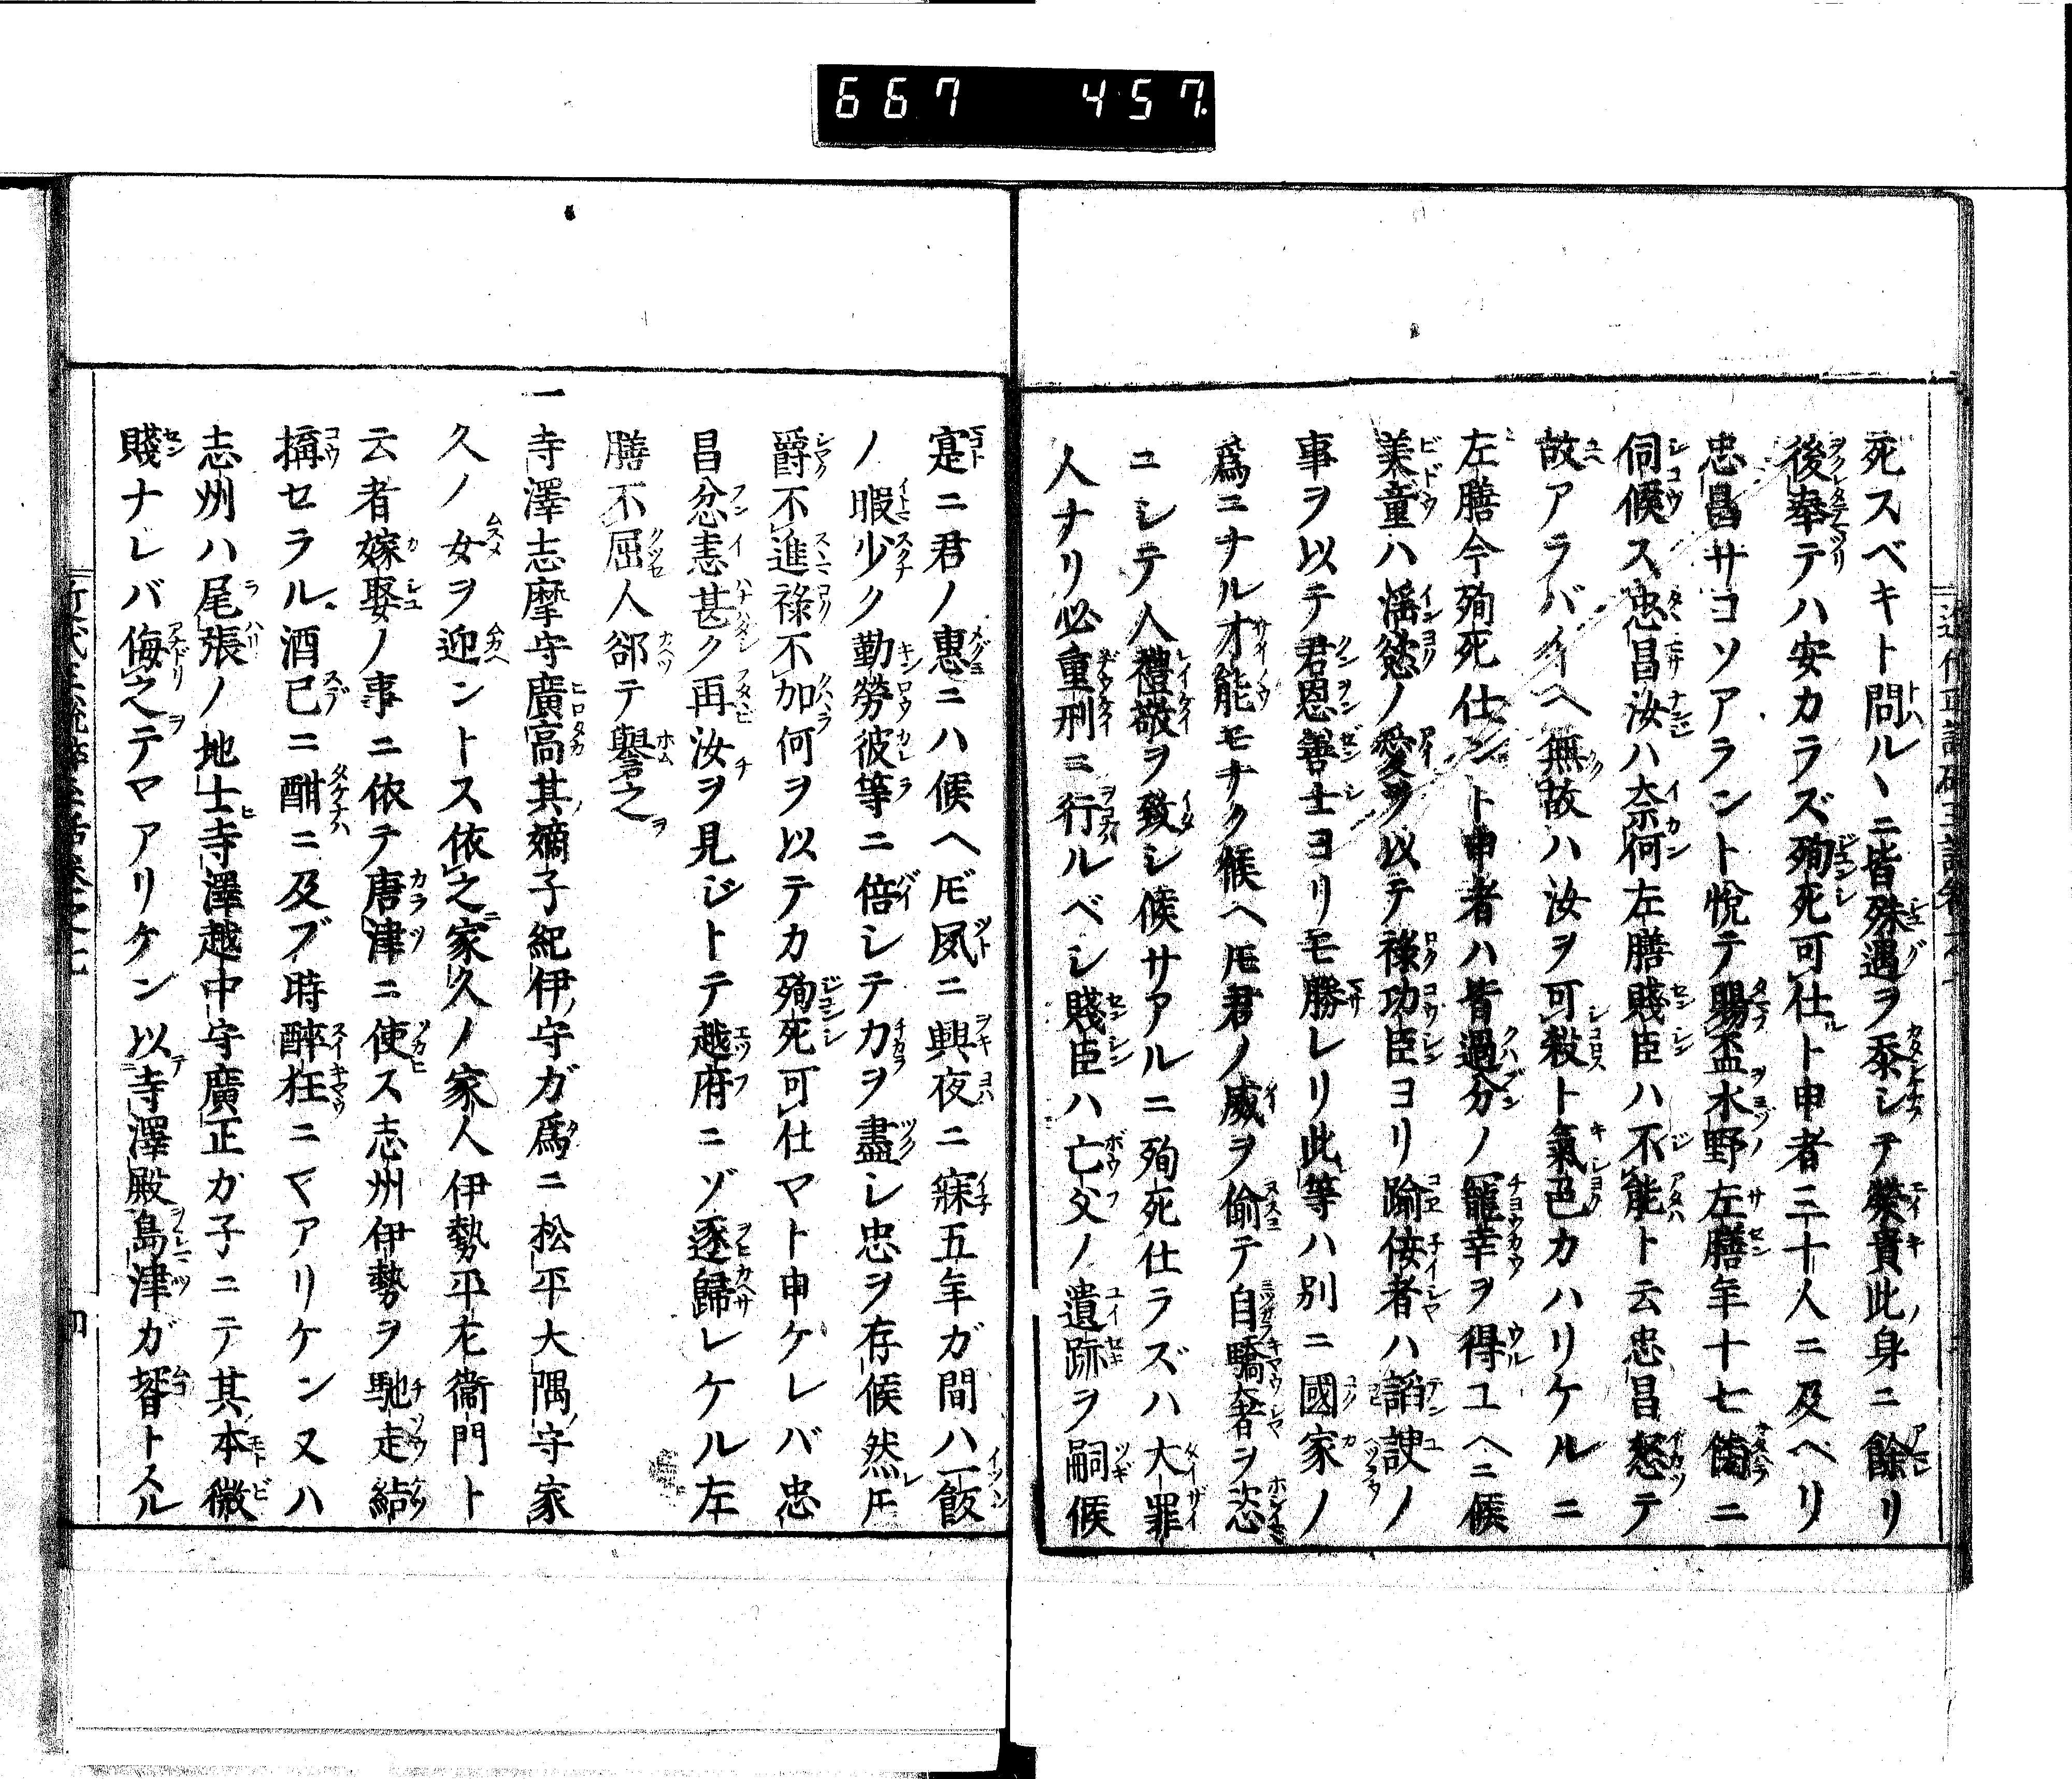 667 457.
死スベキト問ルヽニ皆殊遇ヲ忝シテ榮貴此身ニ餘リ
後奉テハ安カラズ殉死可仕ト申者三十人ニ及ベリ
忠昌サコソアラント悅テ賜盃水野左膳年十七歳ニ
伺候ス忠昌汝ハ奈何左膳賤臣ハ不能ト云忠昌怒テ
故アラバイヘ無故ハ汝ヲ可殺ト氣色カハリケルニ
左膳今殉死仕ント申者ハ皆過分ノ寵幸ヲ得ユヘニ候
美童ハ滛慾ノ愛ヲ以テ祿功臣ヨリ踰侫者ハ諂諛ノ
事ヲ以テ君恩善士ヨリモ勝レリ此等ハ別ニ國家ノ
爲ニナル才能モナク候ヘ𪜈君ノ威ヲ偸テ自驕奢ヲ恣
ニシテ人禮敬ヲ致シ候サアルニ殉死仕ラズハ大罪
人ナリ必重刑ニ行ルベシ賤臣ハ亡父ノ遺跡ヲ嗣候
寔ニ君ノ惠ニハ候ヘ𪜈夙ニ興夜ニ寐五年ガ間ハ一飯
ノ暇少ク勤勞彼等ニ倍シテ力ヲ盡シ忠ヲ存候然𪜈
爵不進祿不加何ヲ以テカ殉死可仕マト申ケレバ忠
昌忿恚甚ク再汝ヲ見ジトテ越府ニゾ逐歸レケル左
膳不屈人郤テ譽之
一寺澤志摩守廣高其嫡子紀伊守ガ爲ニ松平大隅守家
久ノ女ヲ迎ントス依之家久ノ家人伊勢平左衞門ト
云者嫁娶ノ事ニ依テ唐津ニ使ス志州伊勢ヲ馳走結
搆セラル酒已ニ酣ニ及ブ時醉枉ニマアリケン又ハ
志州ハ尾張ノ地士寺澤越中守廣正ガ子ニテ其本微
賤ナレバ侮之テマアリケン以寺澤殿島津ガ聟トスル